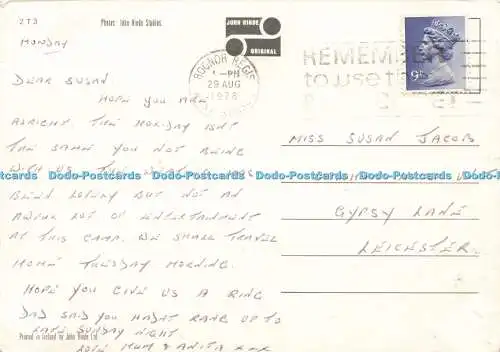 2T3
Photo: John Hinde Studios.
JOHN HINDE
ORIGINAL
BOGNOR REGIS
1 - PM
29 AUG
1978
REMEMBER
to use the
9P
MONDAY
DEAR SUSAN
HOPE YOU ARE
ALRIGHT THE HOLIDAY ISN'T
THE SAME YOU NOT BEING
WITH US. THE
BEEN LOVELY BUT NOT AN
AWFUL LOT OF ENTERTAINMENT
AT THIS CAMP. WE SHALL TRAVEL
HOME TUESDAY MORNING.
HOPE YOU GIVE US A RING
DAD SAID YOU HADN'T RANG UP TO
LATE SUNDAY NIGHT
LOVE MUM & ANITA XXX
Printed in Ireland by John Hinde Ltd.
MISS SUSAN JACOB
GYPSY LANE
LEICESTER
Dodo-Postcards Dodo-Postcards Dodo-Postcards Dodo-Postcards